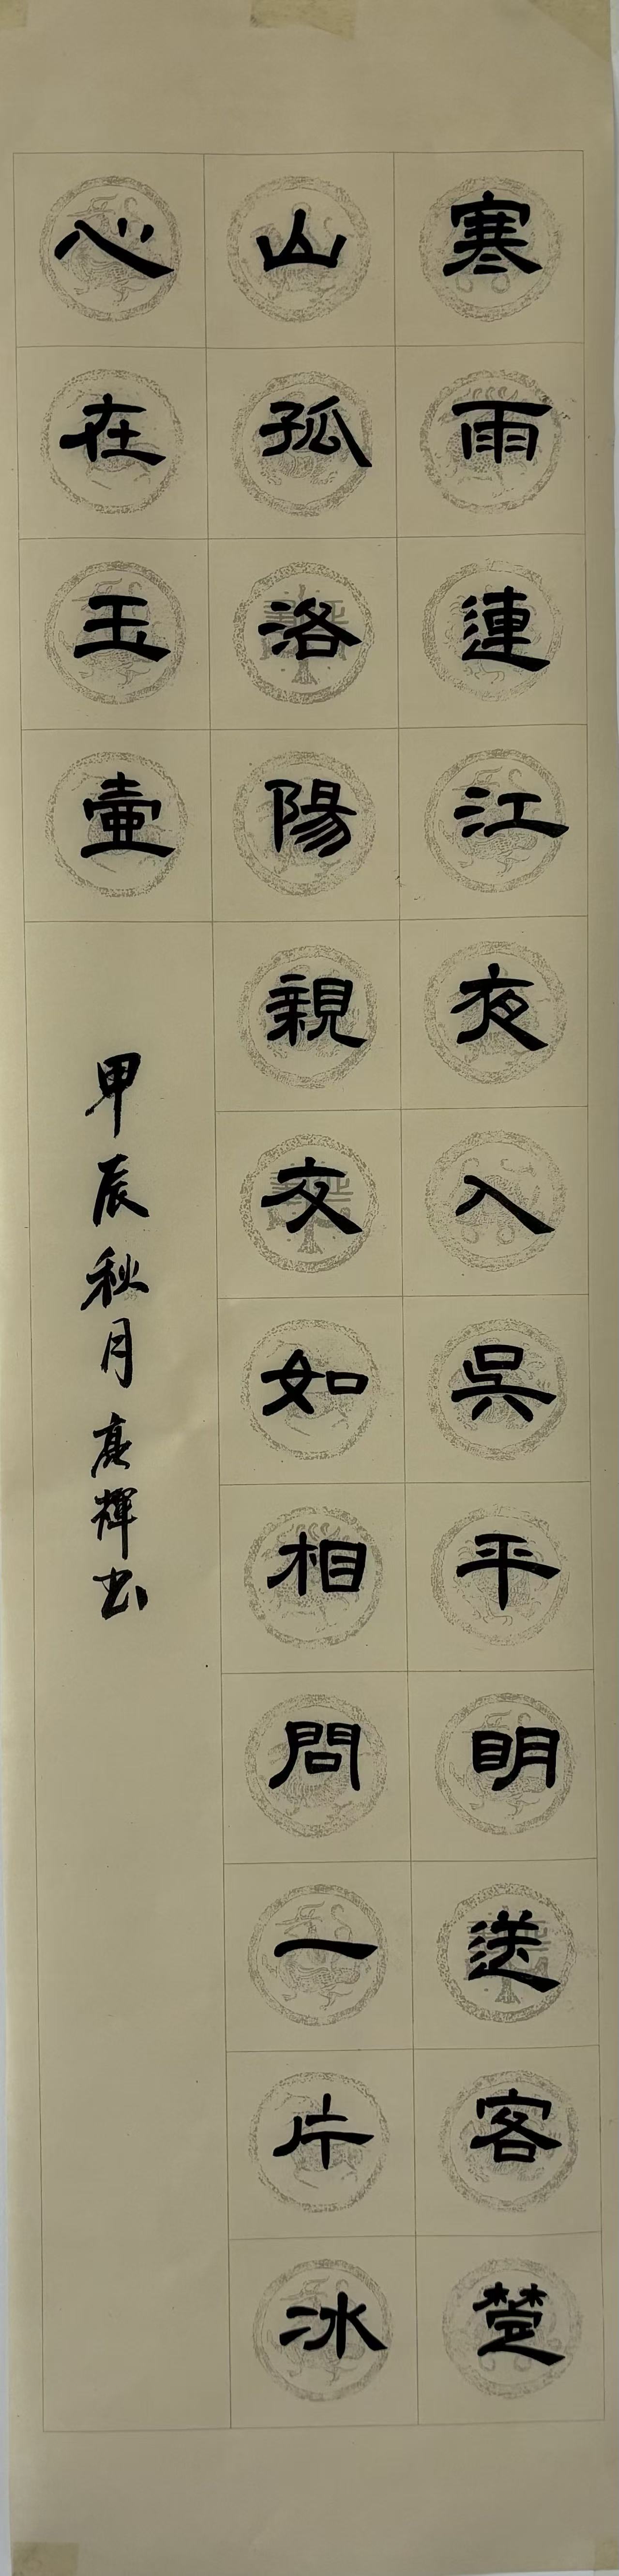 寒雨連江夜入吳平明送客楚
山孤洛陽親友如相問一片冰
心在玉壺
甲辰秋月康輝書